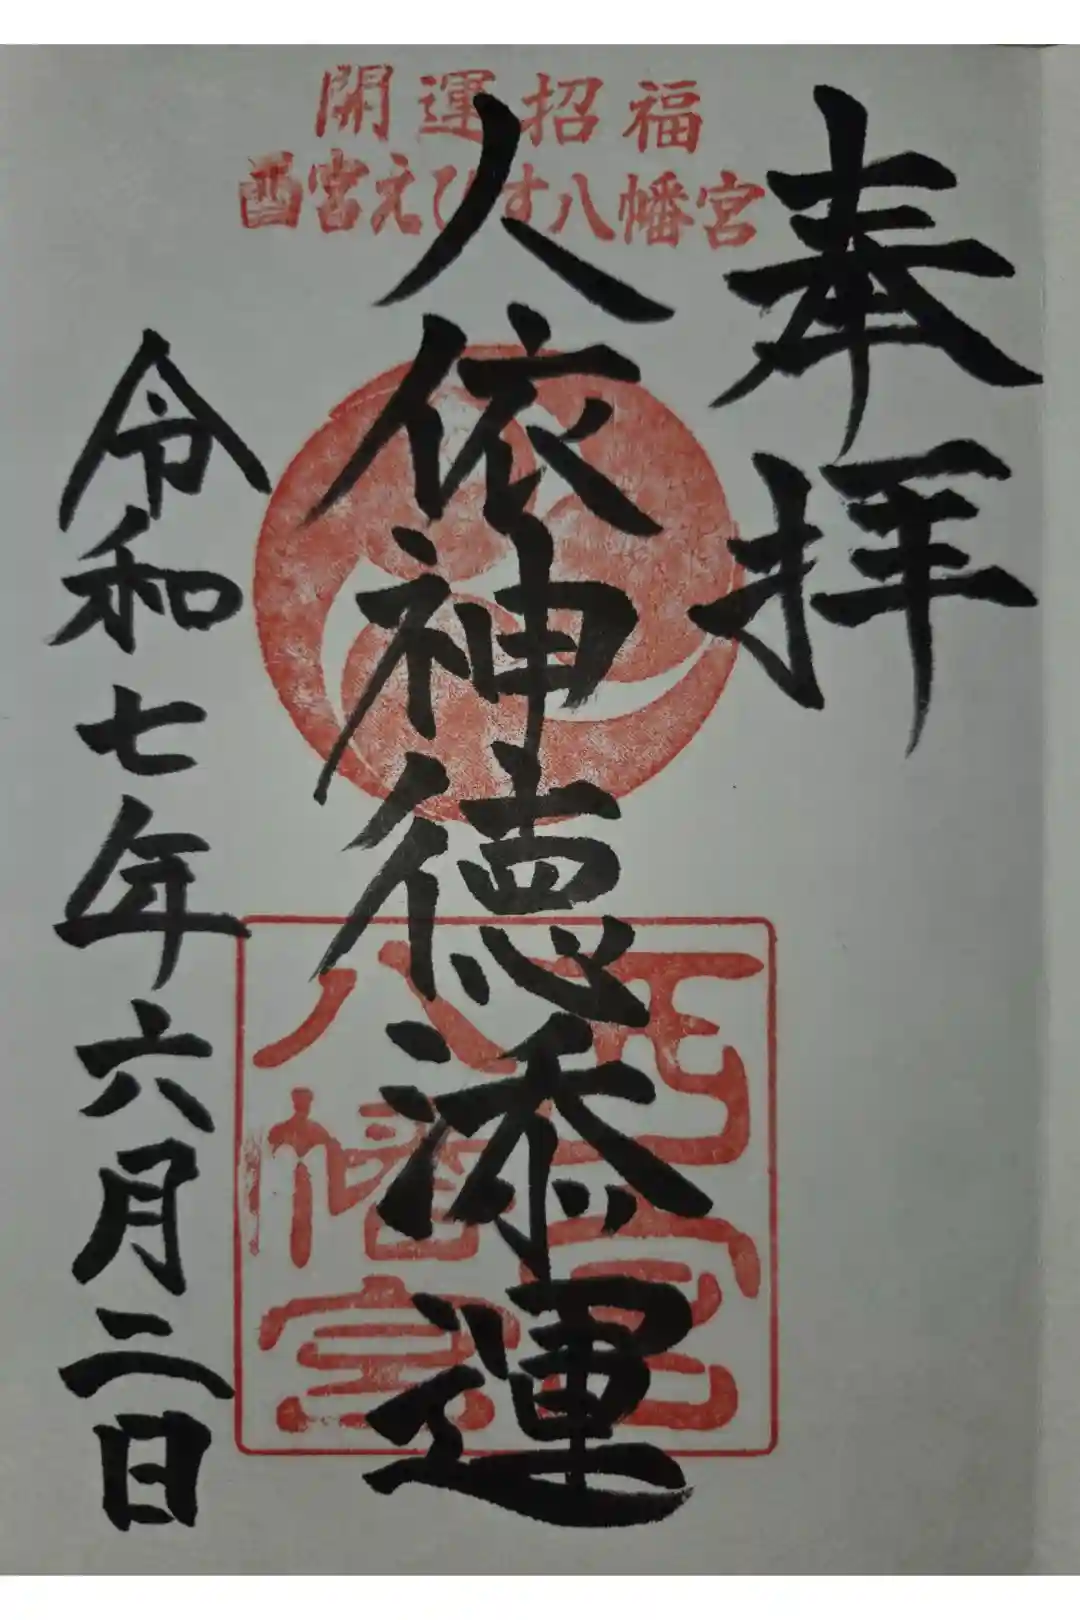 開運招福
酉宮えびす八幡宮
奉拝
人依神徳添運
令和七年六月二日
八幡宮